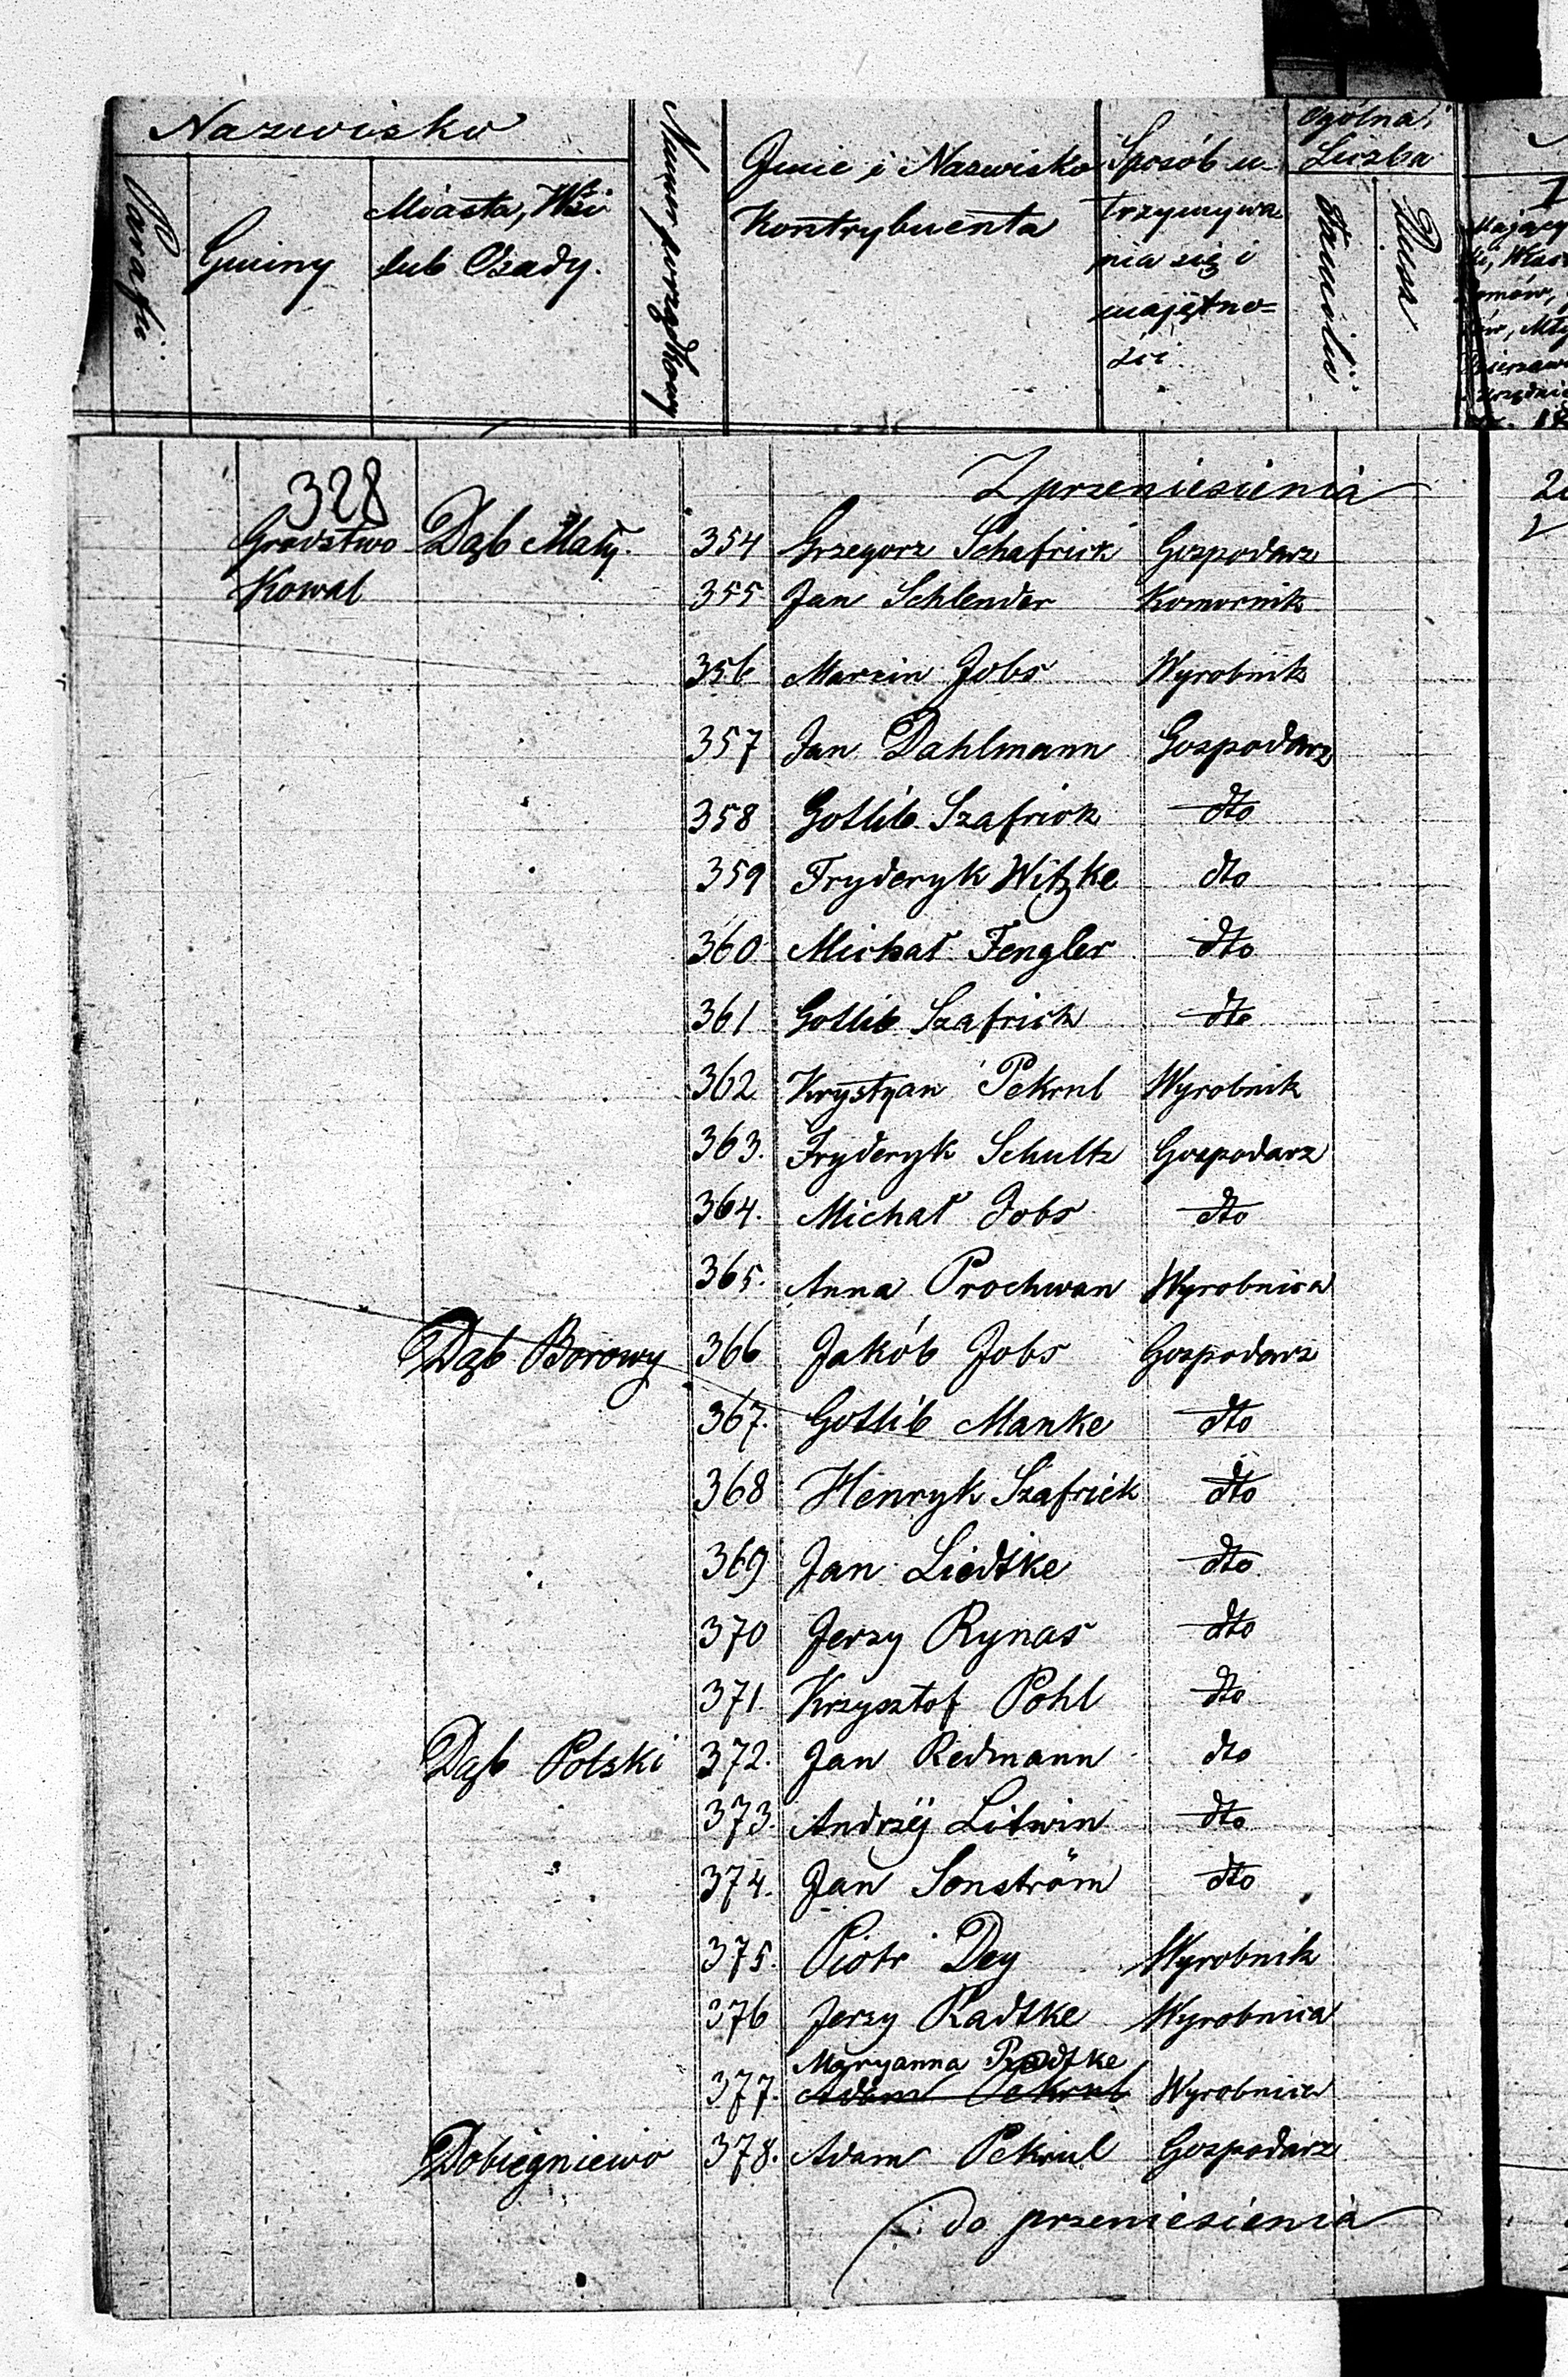 Nazwisko
Parafii
Gminy
Miasta, Wsi
lub Osady.
Numer porządkowy
Imie i Nazwisko
Kontrybuenta
Sposób u-
trzymywa
nia się i
majętno=
ści
Ogólna
Liczba
Familii
Dusz
328
Z przeniesienia
Grodztwo Dąb Mały. 354 Grzegorz Schafrick Gospodarz
Kowal 355 Jan Schlender Komornik
356 Marcin Jobs Wyrobnik
357 Jan Dahlmann Gospodarz
358 Gotlib Szafrick dto
359 Fryderyk Witzke dto
360 Michał Fengler dto
361 Gotlib Szafrick dto
362 Krystyan Pekrul Wyrobnik
363. Fryderyk Schultz Gospodarz
364. Michał Jobs dto
365. Anna Prochwan Wyrobnica
Dąb Borowy 366 Jakób Jobs Gospodarz
367. Gotlib Manke dto
368 Henryk Szafrick dto
369 Jan Liedtke dto
370 Jerzy Rynas dto
371. Krzysztof Pohl dto
Dąb Polski 372. Jan Redmann dto
373. Andrzéj Litwin dto
374. Jan Sonström dto
375. Piotr Dey Wyrobnik
376 Jerzy Radtke Wyrobnica
Maryanna Radtke
377. Adam Pekrul Wyrobnica
Dobiegniewo 378. Adam Pekrul Gospodarz
do przeniesienia